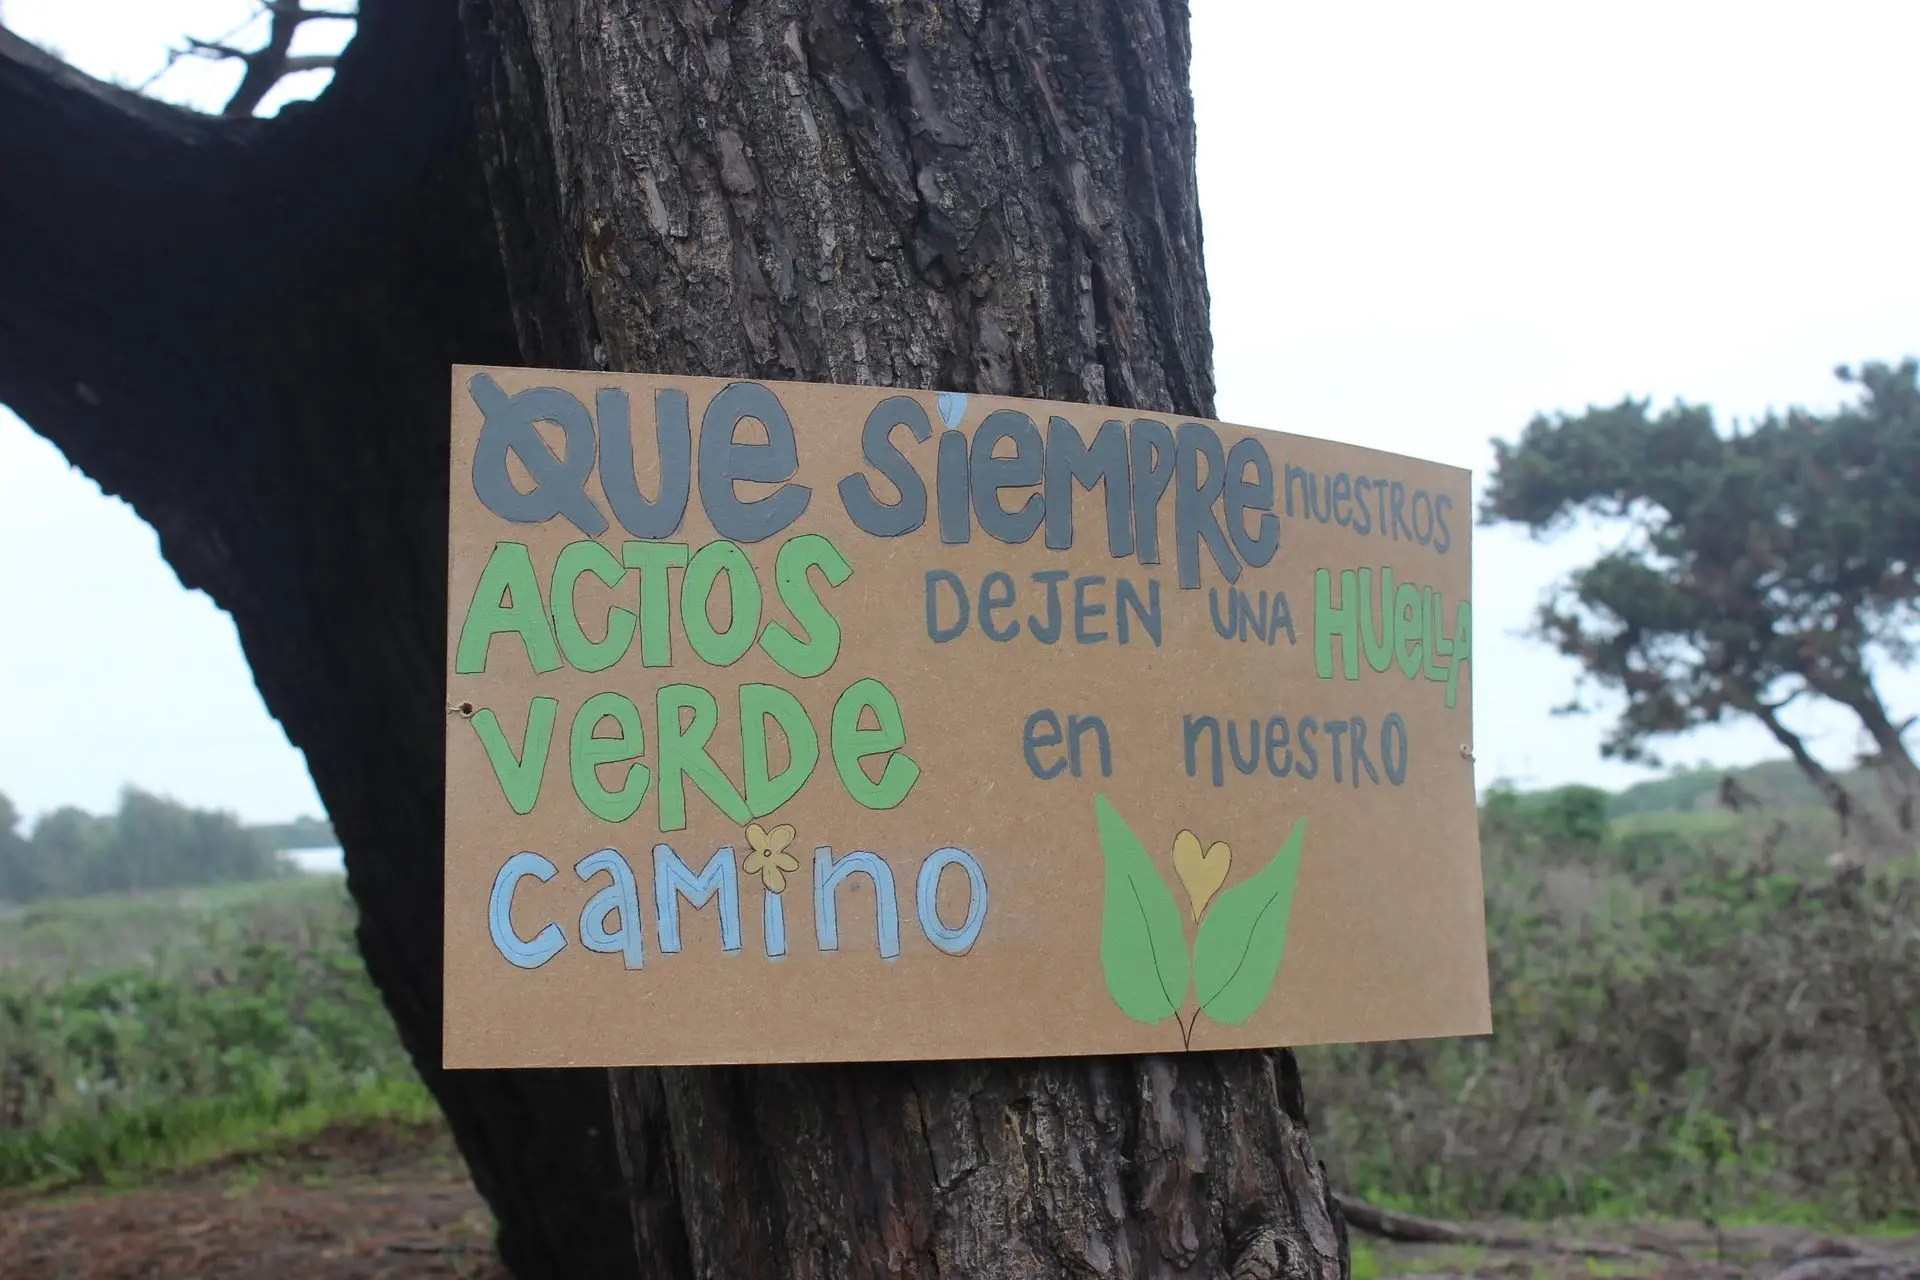 Que siempre nuestros
actos dejen una huella
verde en nuestro
camino